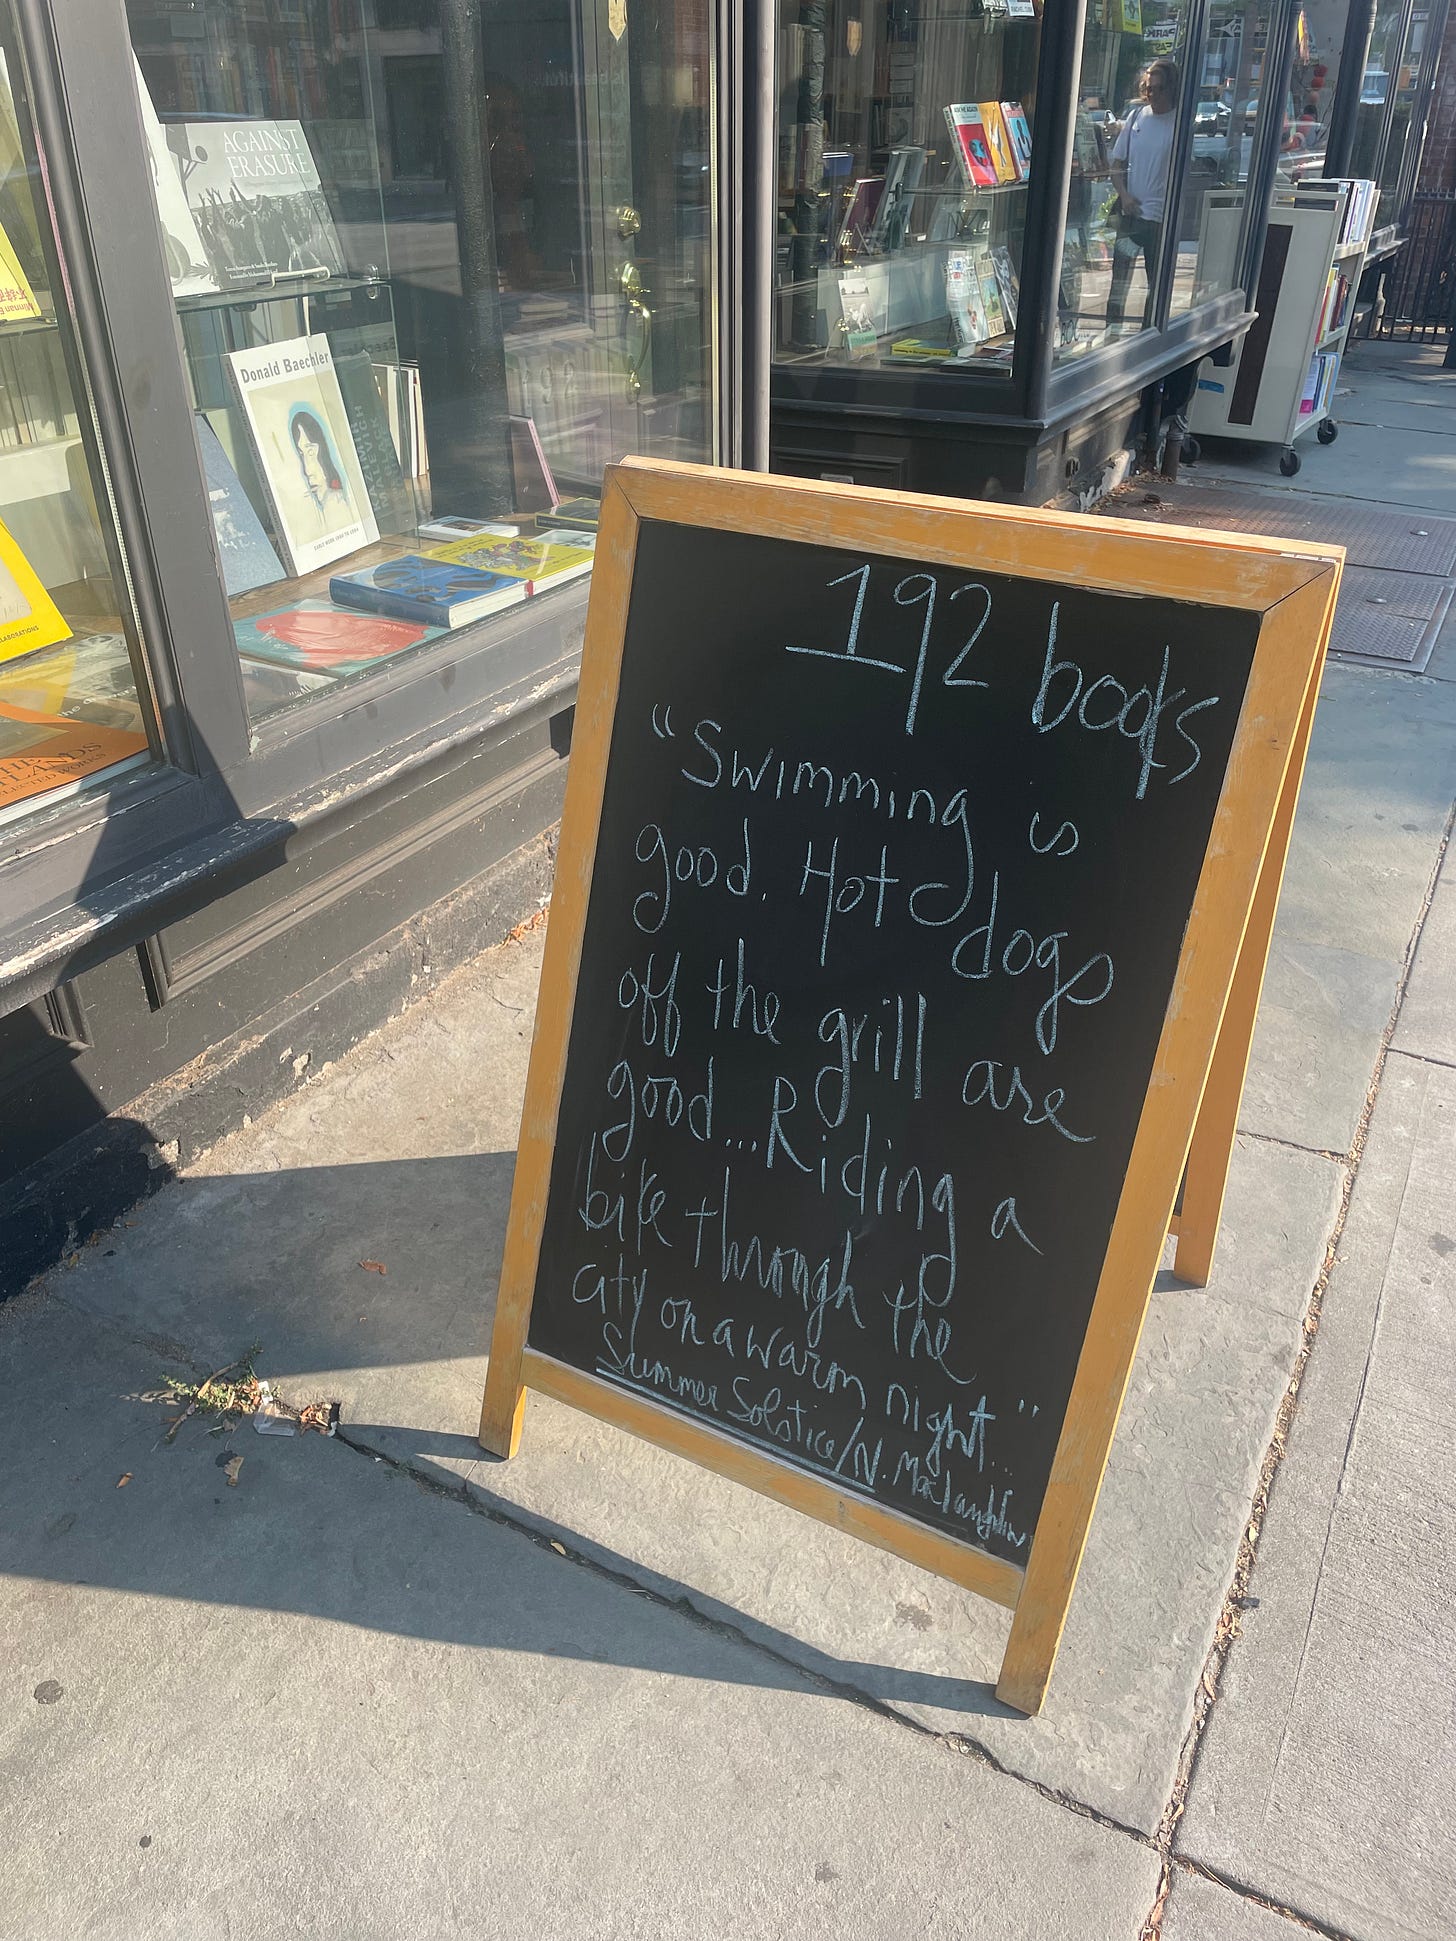 AGAINST
ERASURE
Donald Baechler
EARLY WORK 1980 TO 1984
192
192 books
"Swimming is
good. Hot dogs
off the grill are
good...Riding a
bike through the
city on a warm night..."
Summer Solstice/N. MacLaughlin